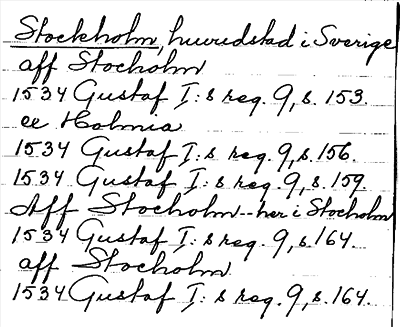 Stockholm, huvudstad i Sverige
aff Stocholm
1534 Gustaf I:s reg. 9, s. 153.
ee Holmia
1534 Gustaf I:s reg. 9, s. 156.
1534 Gustaf I:s reg. 9, s. 159.
Aff Stocholm -- her i Stocholm
1534 Gustaf I:s reg. 9, s. 164.
aff Stocholm
1534 Gustaf I:s reg. 9, s. 164.